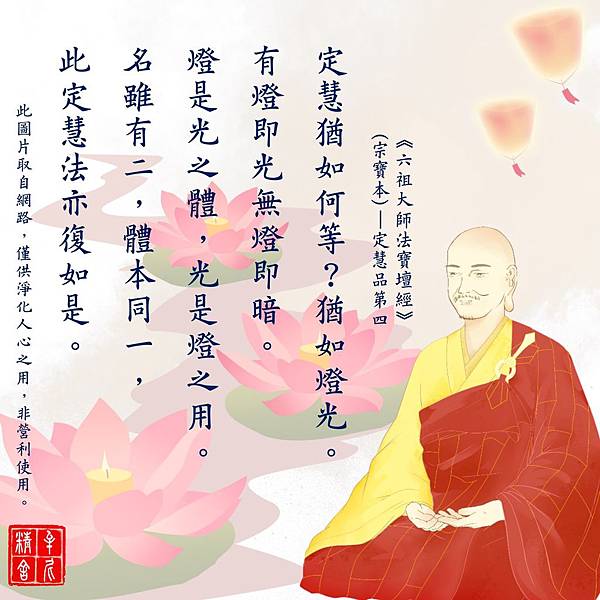 《六祖大師法寶壇經》
(宗寶本)—定慧品第四
定慧猶如何等？猶如燈光。
有燈即光無燈即暗。
燈是光之體，光是燈之用。
名雖有二，體本同一，
此定慧法亦復如是。
此圖片取自網路，僅供淨化人心之用，非營利使用。
精舍